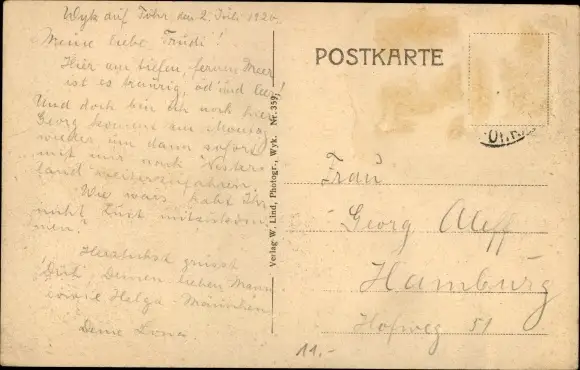 Wyk auf Föhr den 2. Juli 1920.
Meine liebe Trudi!
Hier am tiefen, fernen Meer
ist es traurig, öd und leer!
Und doch bin ich noch hier
Georg kommt am
wieder um dann sofort
mit mir nach
land weiterzufahren.
Wie wär's, habt Ihr
nicht Lust mitzukom-
men?
Herzlichst grüsst
Dich, Deinen lieben Mann
sowie Helga
Deine
POSTKARTE
Verlag W. Lind, Photogr., Wyk. Nr. 359
Frau
Georg Aleff
Hamburg
Hofweg 51
11.-